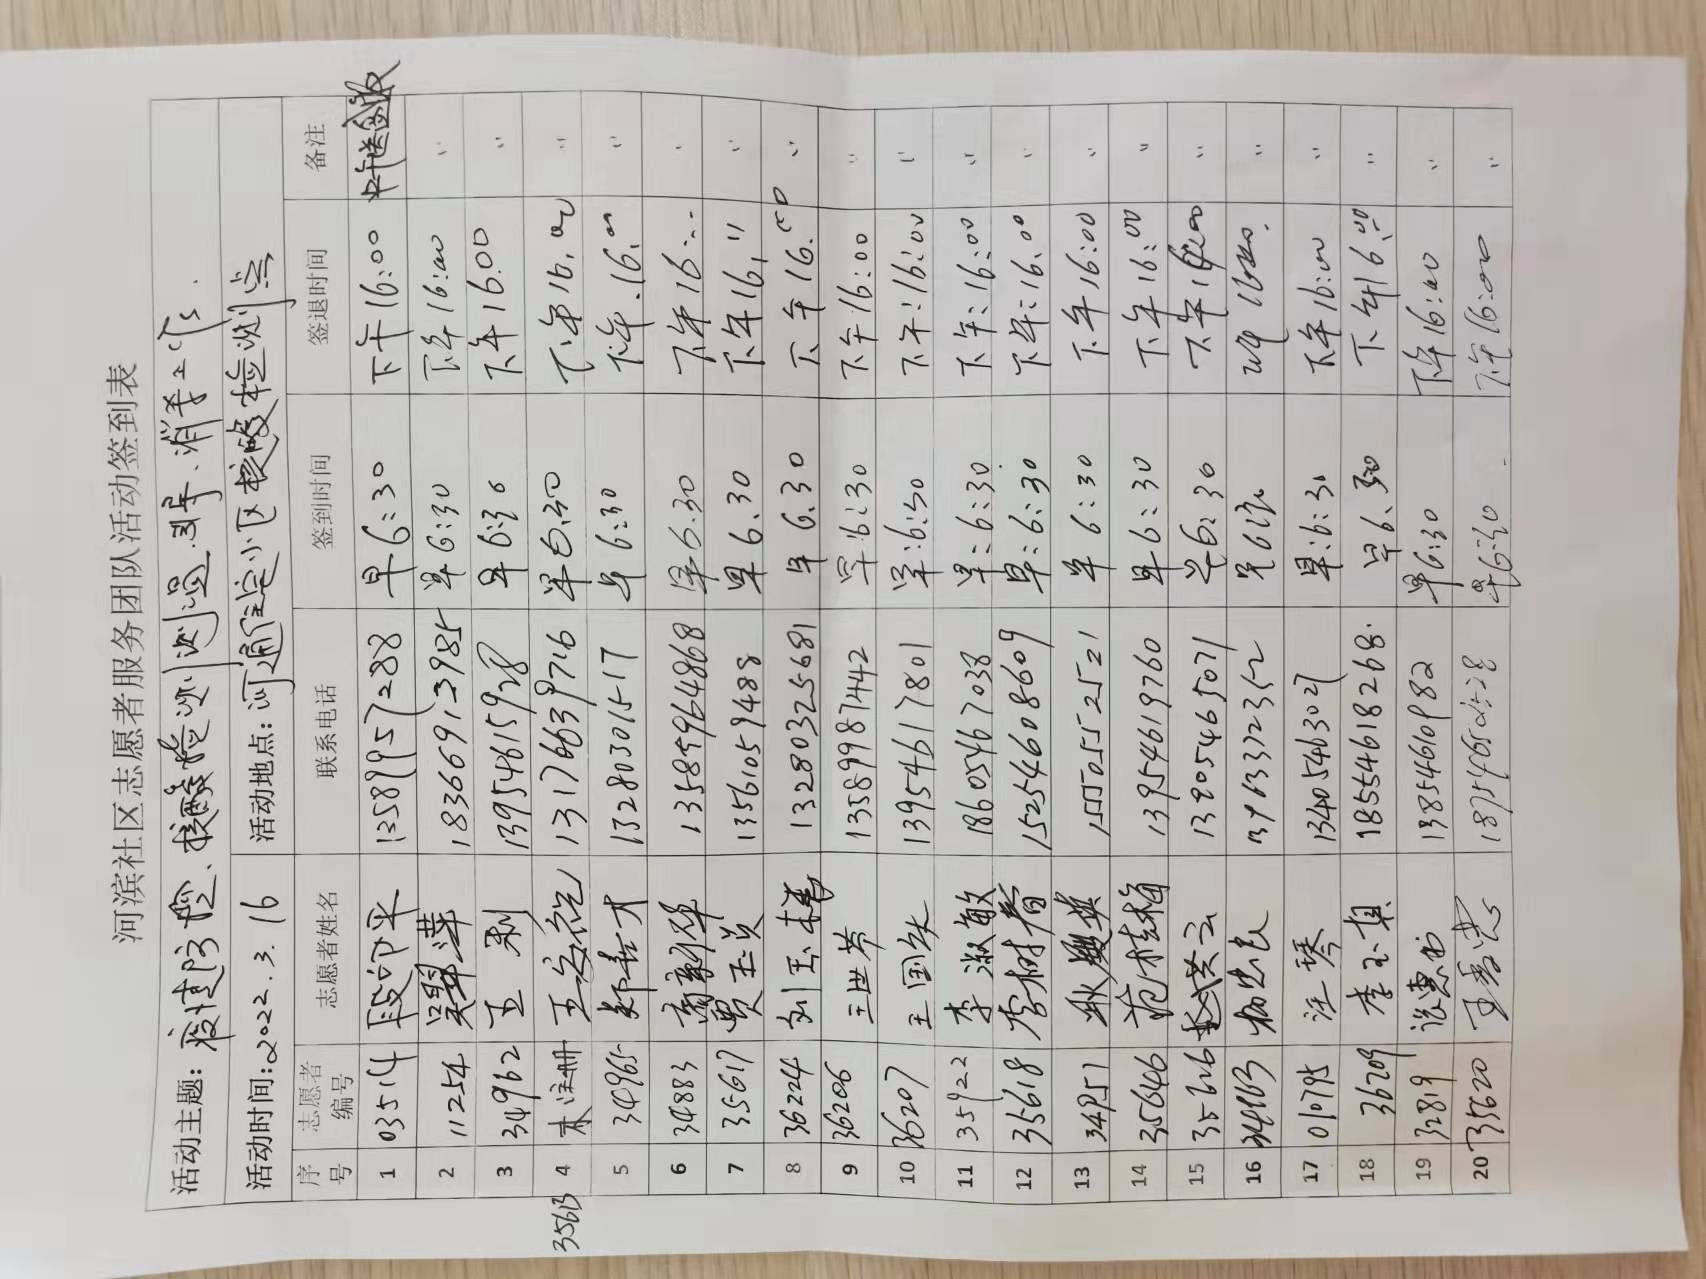 河滨社区志愿者服务团队活动签到表
活动主题：疫情防控、核酸检测测温、消杀工作.
活动时间：2022.3.16 活动地点：河通住宅小区核酸检测点
序号 志愿者编号 志愿者姓名 联系电话 签到时间 签退时间 备注
1 03514 段卬平 13589957288 早6:30 下午16:00
2 11254 吴翠萍 18366913985 早6:30 下午16:00 〃
3 34962 王利 13954615928 早6:30 下午16.00 〃
35613 4 未注册 13176639716 早6.30 下午16.00 〃
5 34965 13280301517 早6:30 下午.16.00 〃
6 34883 13589964868 早6.30 下午16:00 〃
7 35617 贾玉贞 13561059488 早6.30 下午16.〃 〃
8 36224 刘玉春 13280325681 早6.30 下午16.00 〃
9 36206 王世芳 13589987442 早:6:30 下午:16:00 〃
10 36207 王国 13954617801 早:6:30 下午:16:00 〃
11 35922 李淑敏 18605467038 早:6:30 下午:16:00 〃
12 35618 李树春 15254608609 早:6:30 下午:16.00 〃
13 34951 耿 英 15505525521 早6:30 下午16:00 〃
14 35646 范桂梅 13954619760 早6:30 下午16:00 〃
15 35626 赵洪云 13905465071 早6:30 下午16:00 〃
16 杨忠良 早6:30 〃
17 01795 汪琴 13405463021 早:6:30 下午16:00 〃
18 36209 李玉真 18554618268. 早6.30 下午16:00 〃
19 32819 13854610982 早6:30 下午16:00 〃
20 35620 王春 早6:30 下午16:00 〃